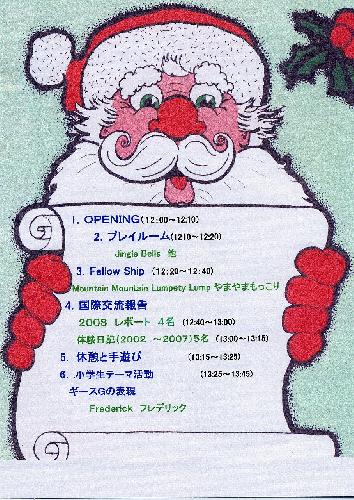 1. OPENING(12:00～12:10)
2. プレイルーム(1210～12:20)
Jingle Bells 他
3. Fellow Ship (12:20～12:40)
Mountain Mountain Lumpety Lump やまやまもっこり
4. 国際交流報告
2008 レポート 4名 (12:40～13:00)
体験日記(2002 ～2007)5名 (13:00～13:15)
5. 休憩と手遊び (13:15～13:25)
6. 小学生テーマ活動 (13:25～13:45)
ギースGの表現
Frederick フレデリック